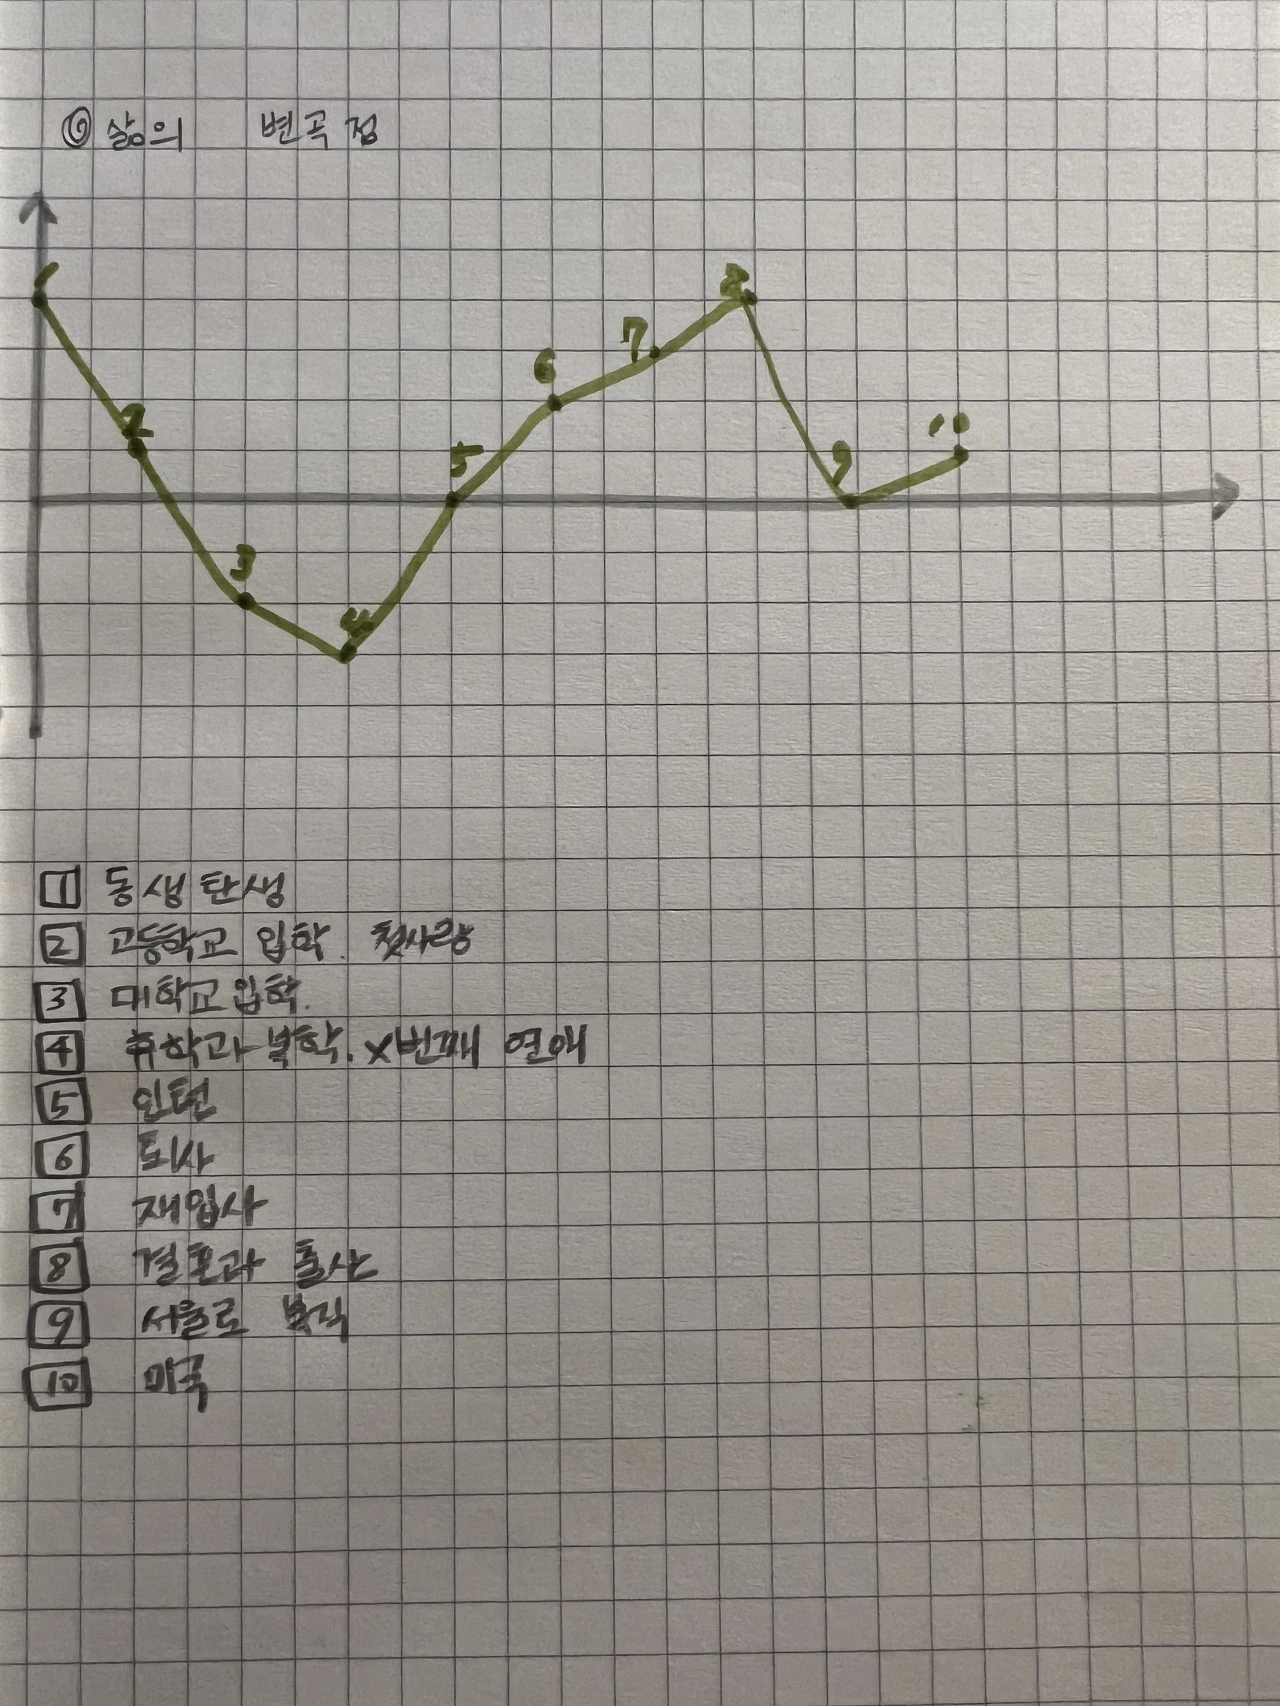 ◎ 삶의 변곡점
1
2
3
4
5
6
7
8
9
10
1 동생탄생
2 고등학교 입학. 첫사랑
3 대학교입학.
4 휴학과 복학. x번째 연애
5 인턴
6 퇴사
7 재입사
8 결혼과 출산
9 서울로 복직
10 미국